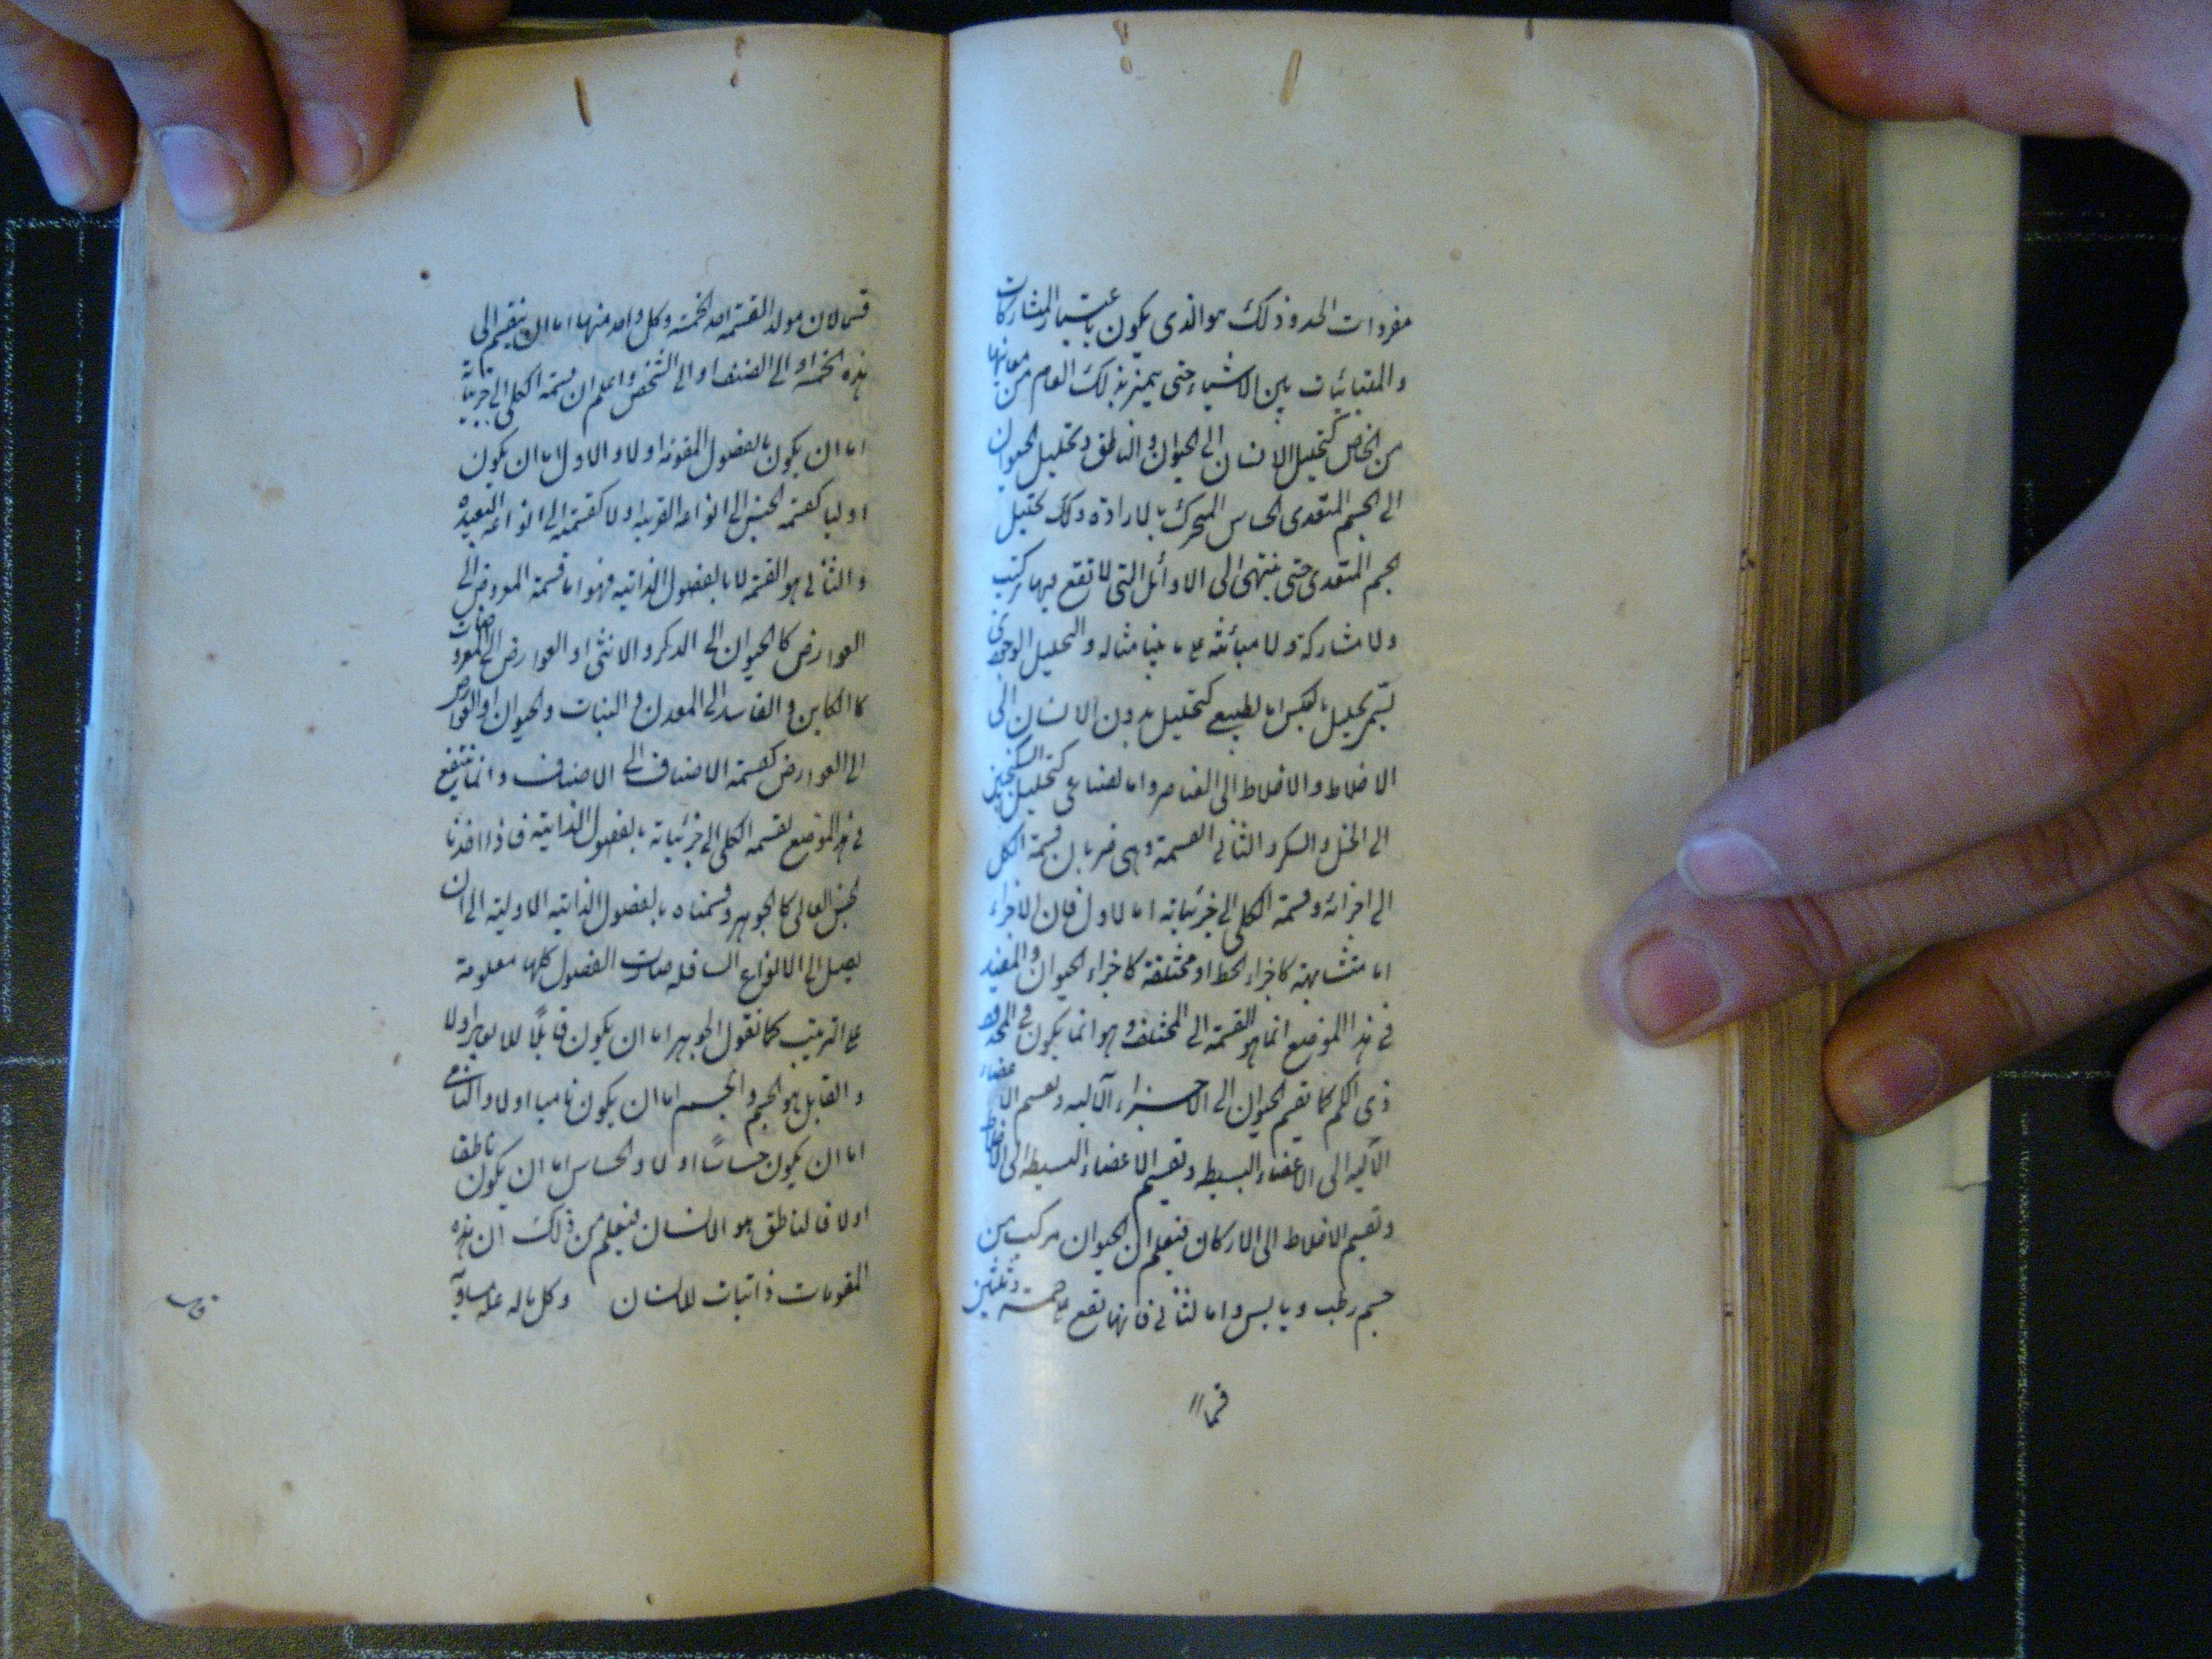 مفردات الحد وذلك هو الذى يكون باعتبار المشاركات
والمتبائنات بين الاشياء حتى يتميز بذلك العام من معانيها
من الخاص كتحليل الانسان الى الحيوان والناطق وتحليل الحيوان
الى الجسم المتغدى الحساس المتحرك بالارادة وكك تحليل
الجسم المتغدى حتى ينتهى الى الاوائل التى لا تقع فيها تركيب
ولا مشاركة ولا مبائنة على ما بينا مثاله والتحليل
يسمى تحليل بالعكس اما لطبيعى كتحليل بدون الانسان الى
الاخلاط والاخلاط الى العناصر واما لصناعى كتحليل السكنجبين
الى الخل والسكر والثانى القسمة وهى ضربان قسمة الكل
الى اجزائه وقسمة الكلى الى جزئياته اما الاول فان الاجزاء
اما متشابهة كاجزاء الخط او مختلفة كاجزاء الحيوان والمفيد
فى هذا الموضع انما هو القسمة الى المختلفة وهو انما يكون فى
ذى الكم كما تقسم الحيوان الى الاجزاء الآلية وتقسم الاعضاء
الآلية الى الاعضاء البسيطه وتقسيم الاعضاء البسيطه الى الاخلاط
وتقسيم الاخلاط الى الاركان فنعلم ان الحيوان مركب من
جسم رطب ويابس واما الثانى فانها تقع على خمسة وثلثين
قسما
قسما لان مولد القسمة احد الخمسة وكل واحد منها اما ان ينقسم الى
هذه الخمسة او الى الصنف او الى الشخص واعلم ان قسمة الكلى الى جزئياته
اما ان يكون بالفصول المقومة اولا والاول اما ان يكون
اوليا كقسمة الجنس الى انواعه القريبة اولا كقسمته الى انواعه البعيده
والثانى هو القسمة لا بالفصول الذاتيه فهو اما قسمة المعروض الى
العوارض كالحيوان الى الذكر والانثى او العوارض الى المعروضات
كالكاين والفاسد الى المعدن والنبات والحيوان او العوارض
الى العوارض كقسمة الاصناف الى الاصناف وانما ينتفع
فى هذا الموضع بقسمة الكلى الى جزئياته بالفصول الذاتيه فاذا اخذنا
الجنس العالى كالجوهر وقسمناه بالفصول الذاتيه الاوليه الى ان
يصل الى الانواع السافله صارت الفصول كلها معلومة
على الترتيب كما نقول الجوهر اما ان يكون قابلًا للابعاد اولا
والقابل هو الجسم والجسم اما ان يكون ناميا اولا والنامى
اما ان يكون حساسًا اولا والحساس اما ان يكون ناطقا
اولا فالناطق هو الانسان فنعلم من ذلك ان هذه
المقومات ذاتيات للانسان وكل ما له علة مساوية